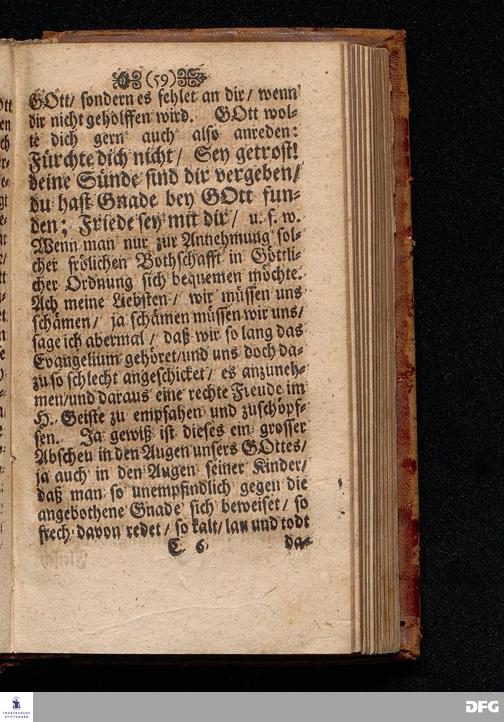 (59)
GOtt/ sondern es fehlet an dir/ wenn
dir nicht geholffen wird. GOtt wol-
te dich gern auch also anreden:
Fürchte dich nicht/ Sey getrost!
deine Sünde sind dir vergeben/
du hast Gnade bey GOtt fun-
den; Friede sey mit dir/ u. s. w.
Wenn man nur zur Annehmung sol-
cher frölichen Bothschafft in Göttli-
cher Ordnung sich bequemen möchte.
Ach meine Liebsten/ wir müssen uns
schämen/ ja schämen müssen wir uns/
sage ich abermal/ daß wir so lang das
Evangelium gehöret/ und uns doch da-
zu so schlecht angeschicket/ es anzuneh-
men/ und daraus eine rechte Freude im
H. Geiste zu empfahen und zuschöpf-
fen. Ja gewiß ist dieses ein grosser
Abscheu in den Augen unsers GOttes/
ja auch in den Augen seiner Kinder/
daß man so unempfindlich gegen die
angebothene Gnade sich beweiset/ so
frech davon redet/ so kalt/ lau und todt
C 6 da-
FRANCKESCHE
STIFTUNGEN
DFG